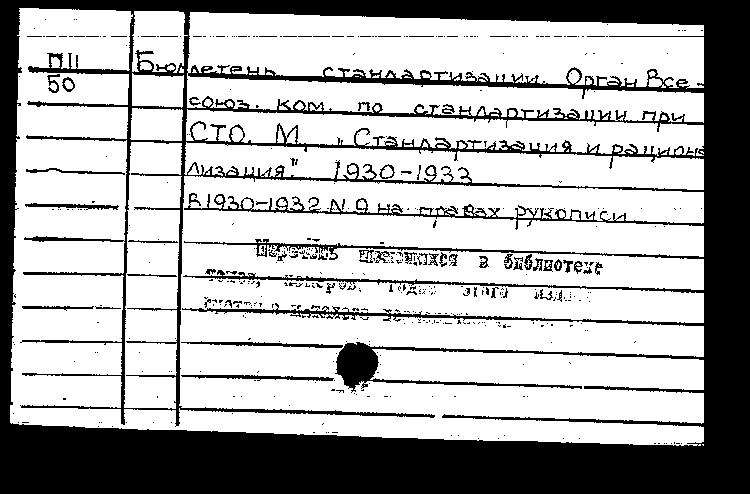 ПII Бюллетень стандартизации. Орган Все-
50
союз. ком. по стандартизации при
СТО. М., "Стандартизация и рациона
лизация". 1930-1933
В 1930-1932 N 9 на правах рукописи
Перечень имеющихся в библиотеке
томов, номеров, годов этого изда